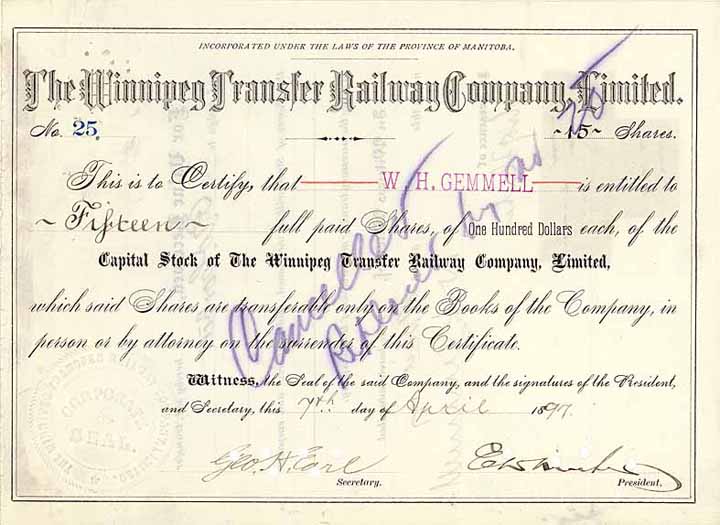 INCORPORATED UNDER THE LAWS OF THE PROVINCE OF MANITOBA.
The Winnipeg Transfer Railway Company, Limited.
No. 25. ~15~ Shares.
This is to Certify, that W. H. GEMMELL is entitled to
~ Fifteen ~ full paid Shares, of One Hundred Dollars each, of the
Capital Stock of The Winnipeg Transfer Railway Company, Limited,
which said Shares are transferable only on the Books of the Company, in
person or by attorney on the surrender of this Certificate.
Witness, the Seal of the said Company, and the signatures of the President,
and Secretary, this 7th day of April 1897.
Geo. H. Earl
Secretary. President.
Cancelled
Replaced by no 35
CORPORATE
SEAL.